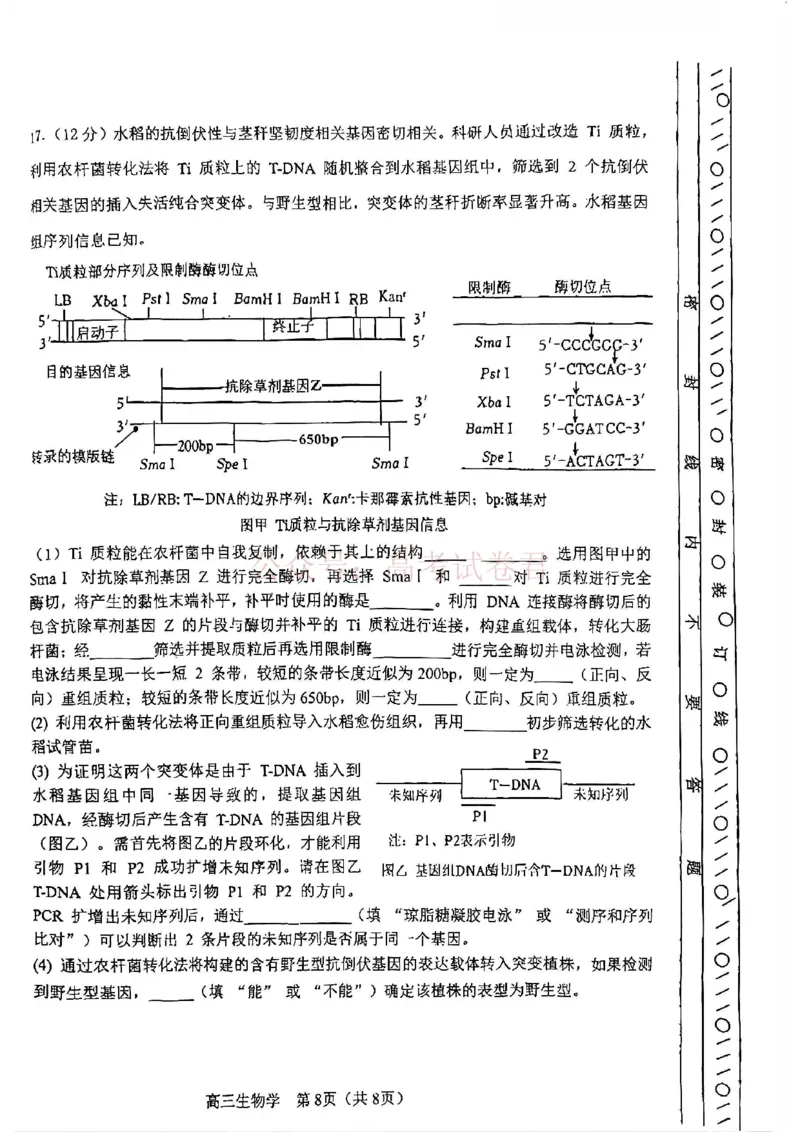 17.（12分）水稻的抗倒伏性与茎秆坚韧度相关基因密切相关。科研人员通过改造 Ti 质粒，
利用农杆菌转化法将 Ti 质粒上的 T-DNA 随机整合到水稻基因组中，筛选到 2 个抗倒伏
相关基因的插入失活纯合突变体。与野生型相比，突变体的茎秆折断率显著升高。水稻基因
组序列信息已知。
Ti质粒部分序列及限制酶酶切位点
LB Xba I Pst I Sma I BamH I BamH I RB Kanʳ
5' 启动子 终止子 3'
3' 5'
目的基因信息
抗除草剂基因Z
5' 3'
3' 5'
转录的模版链
200bp 650bp
Sma I Spe I Sma I
限制酶 酶切位点
Sma I 5'-CCCGGG-3'
Pst I 5'-CTGCAG-3'
Xba I 5'-TCTAGA-3'
BamH I 5'-GGATCC-3'
Spe I 5'-ACTAGT-3'
注：LB/RB: T-DNA的边界序列；Kanʳ:卡那霉素抗性基因；bp:碱基对
图甲 Ti质粒与抗除草剂基因信息
公众号：高考试卷君
（1）Ti 质粒能在农杆菌中自我复制，依赖于其上的结构________。选用图甲中的
Sma I 对抗除草剂基因 Z 进行完全酶切，再选择 Sma I 和 ______对 Ti 质粒进行完全
酶切，将产生的黏性末端补平，补平时使用的酶是______。利用 DNA 连接酶将酶切后的
包含抗除草剂基因 Z 的片段与酶切并补平的 Ti 质粒进行连接，构建重组载体，转化大肠
杆菌；经______筛选并提取质粒后再选用限制酶______进行完全酶切并电泳检测，若
电泳结果呈现一长一短 2 条带，较短的条带长度近似为 200bp，则一定为____（正向、反
向）重组质粒；较短的条带长度近似为 650bp，则一定为____（正向、反向）重组质粒。
(2) 利用农杆菌转化法将正向重组质粒导入水稻愈伤组织，再用______初步筛选转化的水
稻试管苗。
(3) 为证明这两个突变体是由于 T-DNA 插入到
水稻基因组中同一基因导致的，提取基因组
DNA，经酶切后产生含有 T-DNA 的基因组片段
（图乙）。需首先将图乙的片段环化，才能利用
引物 P1 和 P2 成功扩增未知序列。请在图乙
T-DNA 处用箭头标出引物 P1 和 P2 的方向。
P2
未知序列 T-DNA 未知序列
P1
注：P1、P2表示引物
图乙 基因组DNA酶切后含T-DNA的片段
PCR 扩增出未知序列后，通过________（填 “琼脂糖凝胶电泳” 或 “测序和序列
比对”）可以判断出 2 条片段的未知序列是否属于同一个基因。
(4) 通过农杆菌转化法将构建的含有野生型抗倒伏基因的表达载体转入突变植株，如果检测
到野生型基因，____（填 “能” 或 “不能”）确定该植株的表型为野生型。
高三生物学 第8页（共8页）
密封线内不要答题
密封装订线